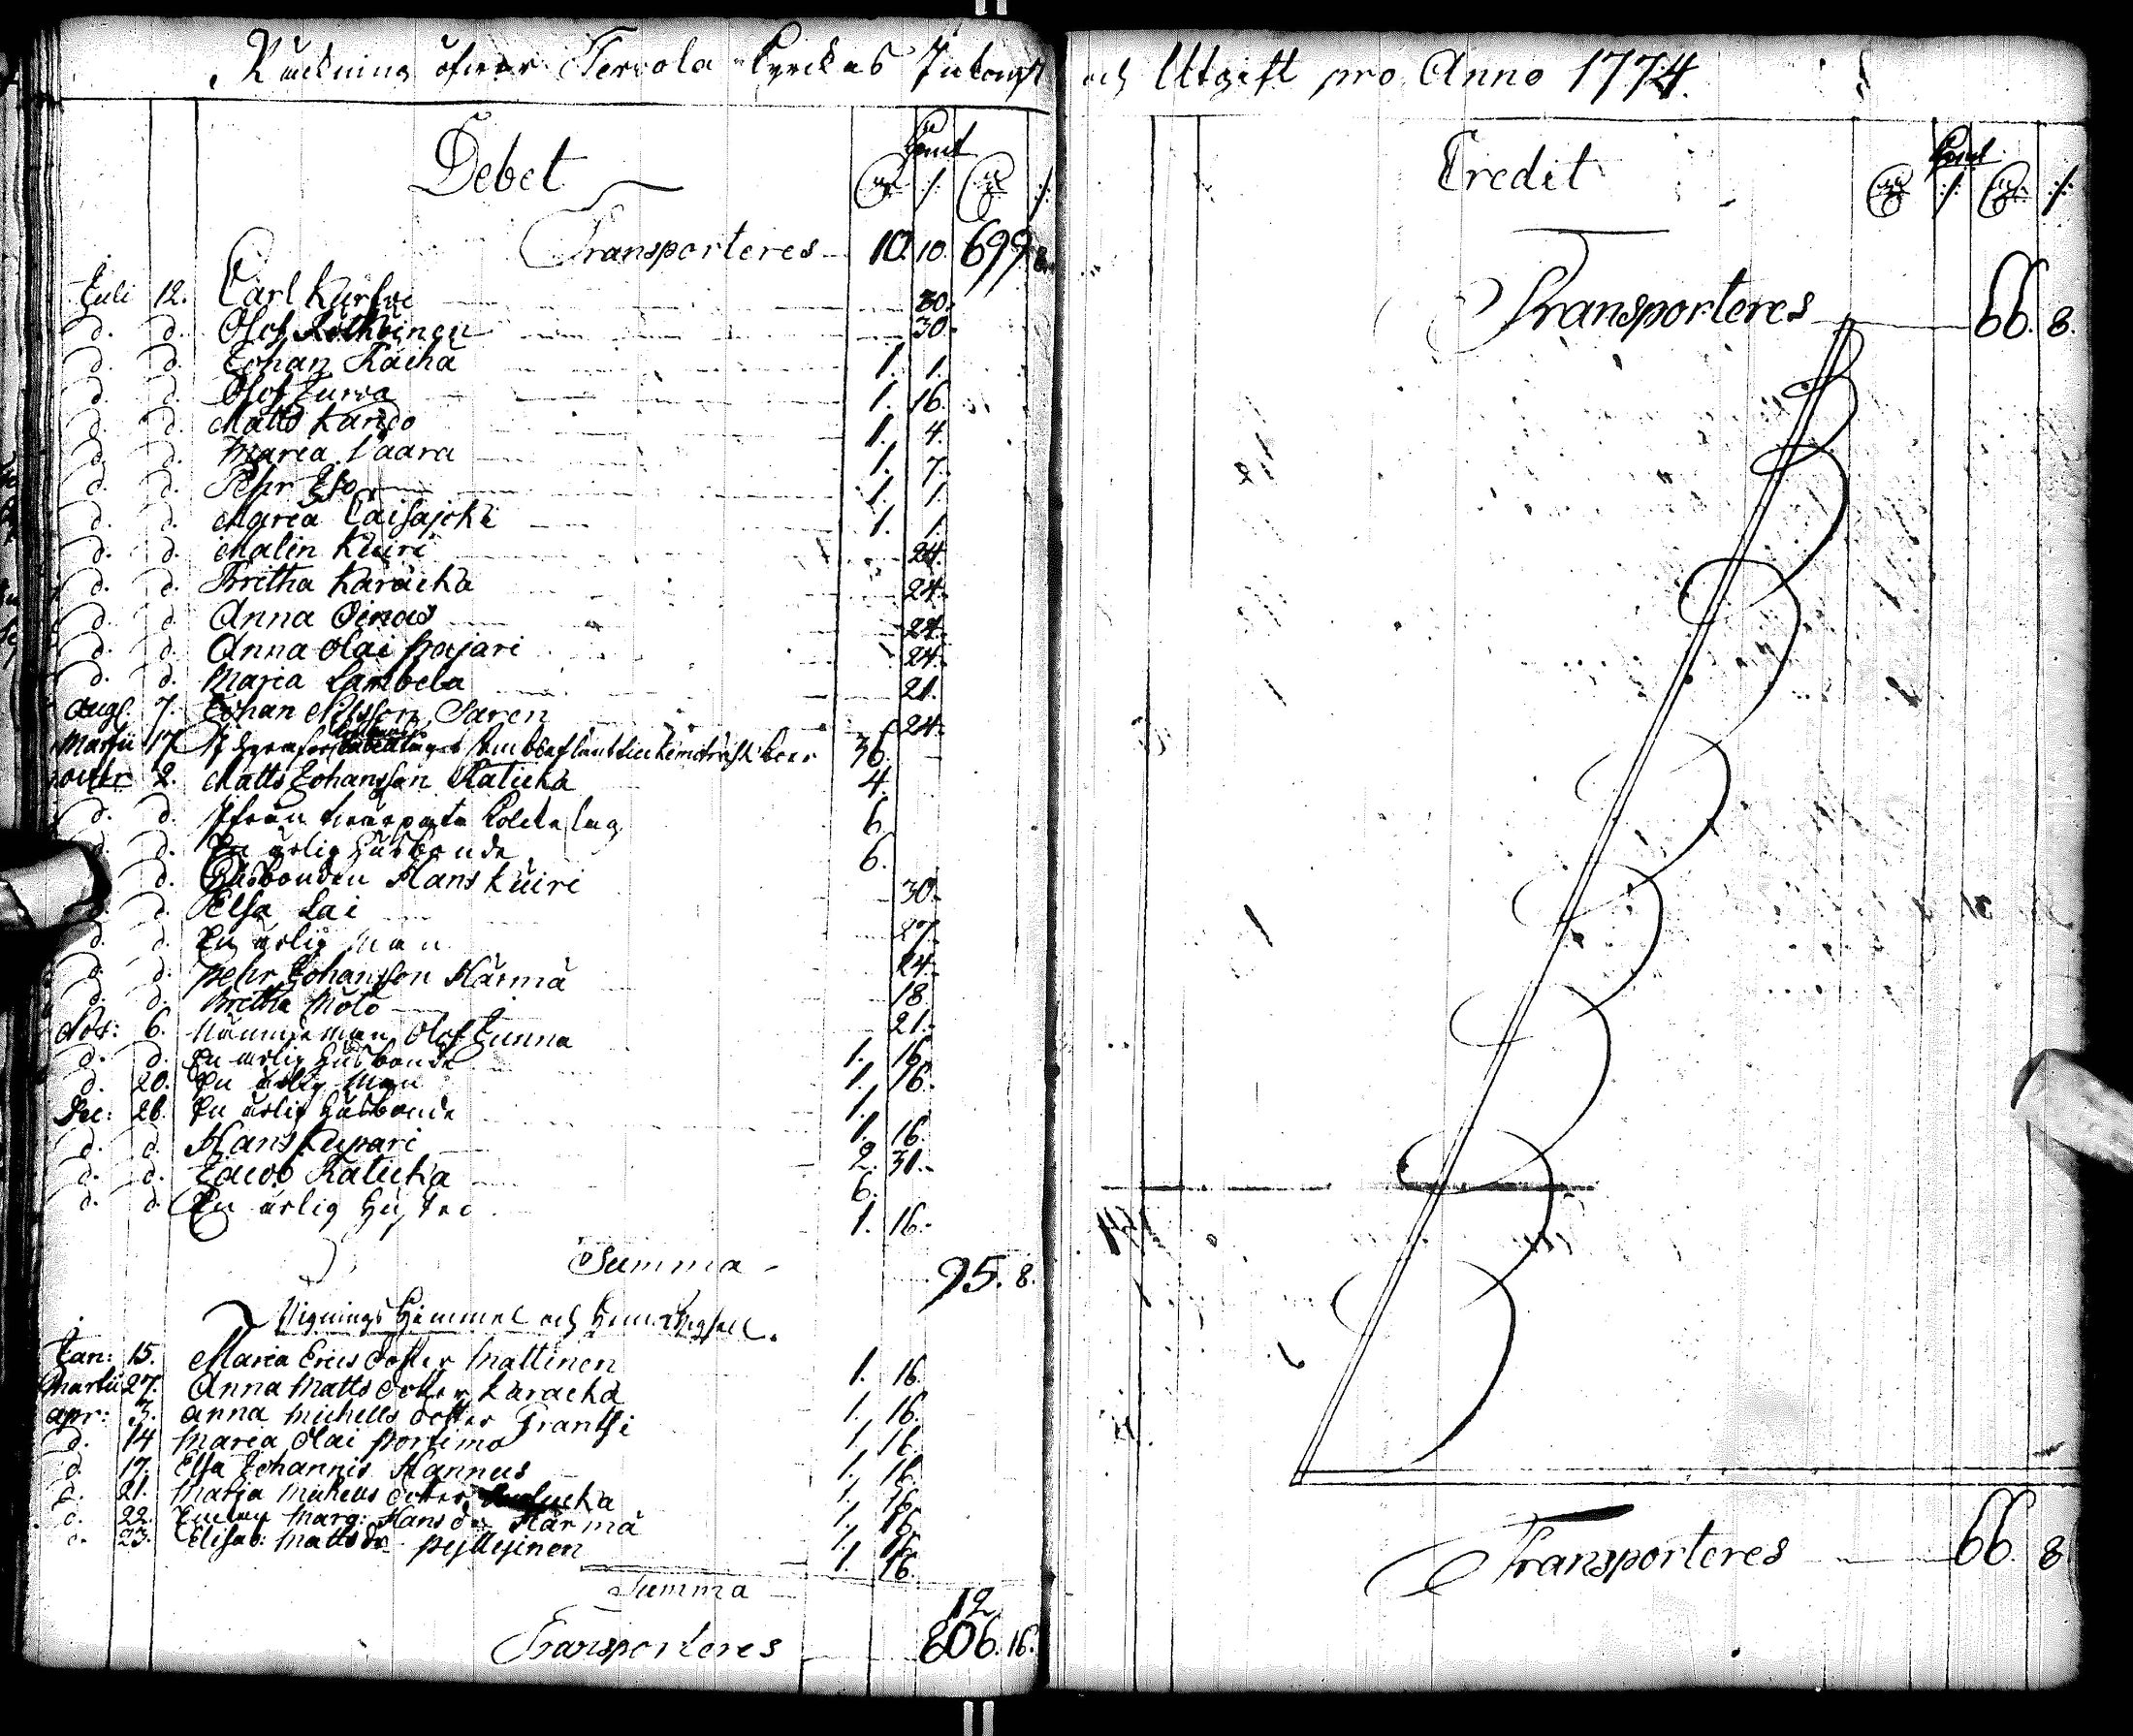 Räckning öfver Tervola Kyrckas Inkomst
Debet
Transporteres 10. 10. 699. 8.
Juli 12. Carl Kursve 30.
d. d. Olof 30.
d. d. Johan Räihä 1. 1.
d. d. Olof Turva 1. 16.
d. d. Matts Kando 1. 4.
d. d. Maria Vaara 1. 7.
d. d. Pehr Eso 1. 1.
d. d. Maria Caisajoki 1. 1.
d. d. Malin Kuiri 24.
d. d. Britha Karaicka 24.
d. d. Anna Oinas 24.
d. d. Anna Olai Pajari 24.
d. d. Maria Lambela 21.
Aug. 7. Johan Nilsson Saren 24.
Martii 17. 36.
2. Matts Johansson Ratucka 4.
d. d. Ifrån 6.
d. d. En ärlig Husbonde 6.
d. Husbonden Hans Kuiri 30.
d. d. Elsa Lai 27.
d. d. En ärlig Man 24.
d. d. Pehr Johansson Härmä 18
d. d. Britha Moto 21.
Nov: 6. Nämndeman Olof Junna 1. 16.
d. d. En ärlig Husbonde 1. 16.
d. 20. En ärlig Man 1.
Dec: 26. En ärlig Husbonde 1. 16.
d. d. Hans Kupari 2. 31.
d. d. Jacob Ratucka 6.
d. d. En ärlig Hustro 1. 16.
Summa 95. 8.
Wignings Himmel och
Jan: 15. Maria Erics dotter Mattinen 1. 16.
Martii 27. Anna Matts dotter Karacka 1. 16.
apr: 3. Anna Michells dotter Frantsi 1. 16.
d. 14 Maria Olai Portimo 1. 16.
d. 17. Elsa Johannis Hannus 1. 16.
d. 21. Maria Michells dotter 1. 16.
d. 22. Marg: Hans dr Härmä 1. 16.
d. 23. Elisab: Matts dr Pyttyinen 1. 16.
Summa 12
Transporteres 806. 16.
och Utgift pro Anno 1774.
Credit
Transporteres 66. 8.
Transporteres 66. 8